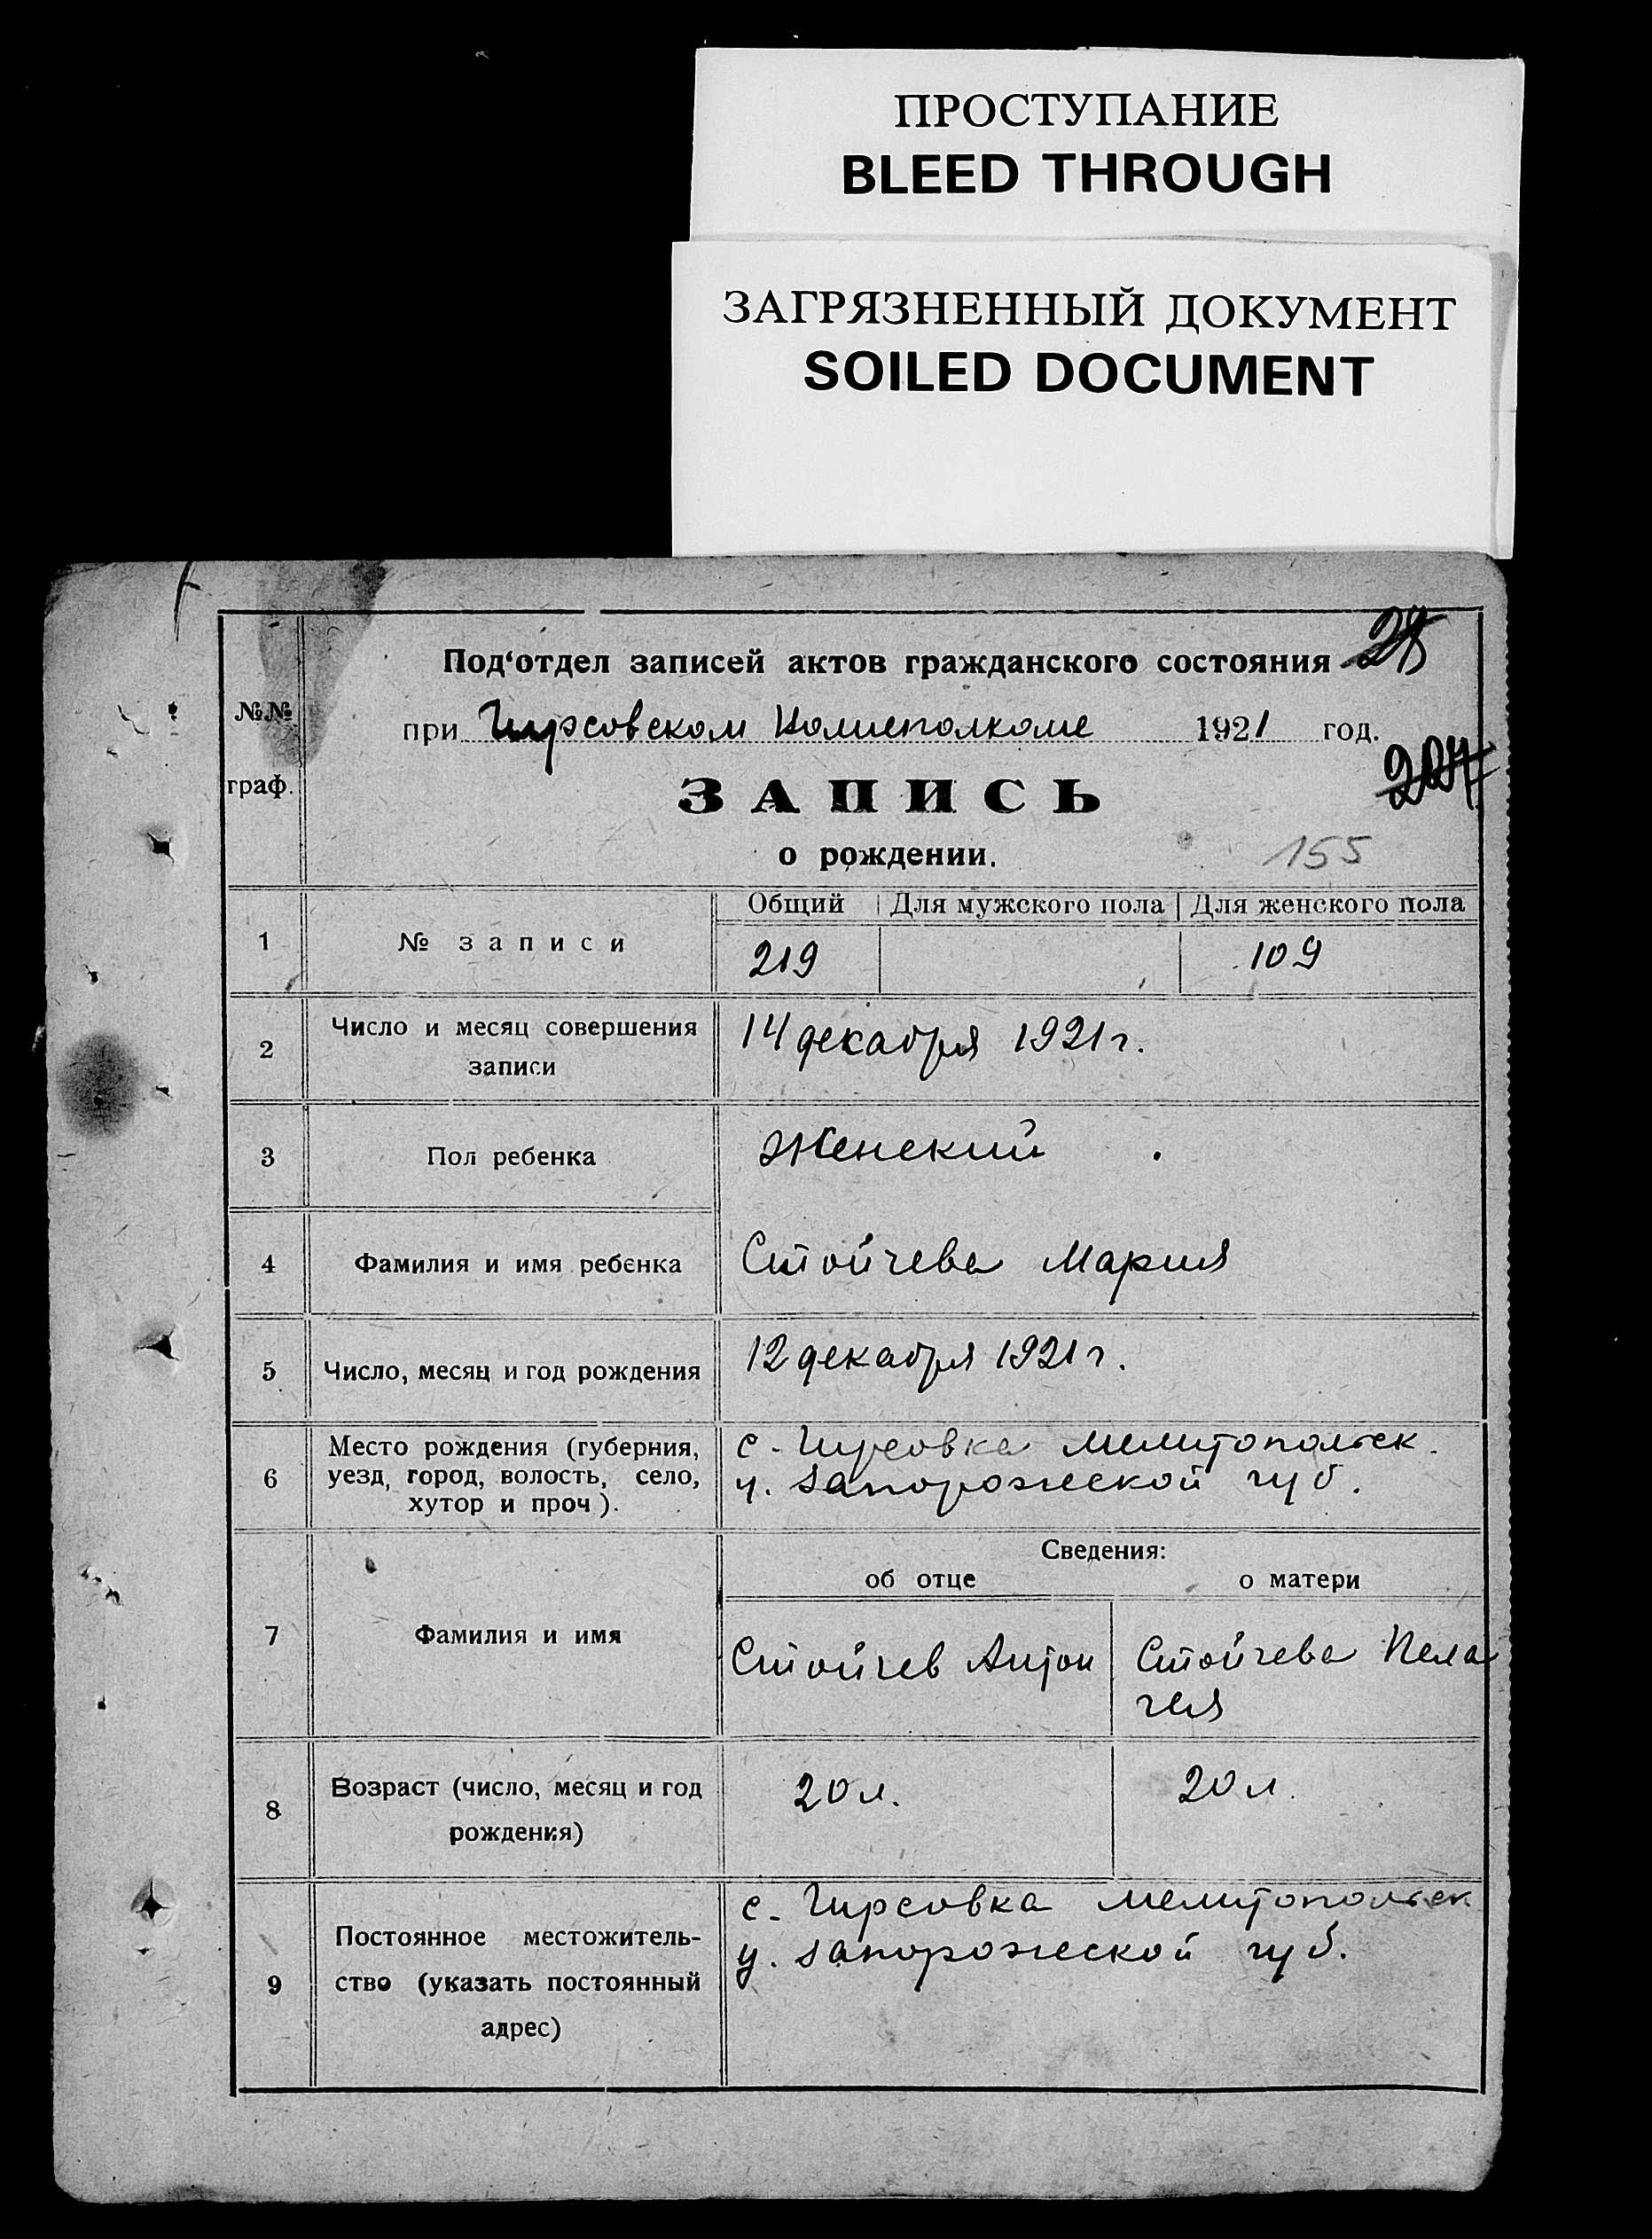 ПРОСТУПАНИЕ
BLEED THROUGH
ЗАГРЯЗНЕННЫЙ ДОКУМЕНТ
SOILED DOCUMENT
28
Под‘отдел записей актов гражданского состояния
№№ граф.
при Гирсовском 1921 год.
204
ЗАПИСЬ
о рождении.
155
Общий Для мужского пола Для женского пола
1 № записи 219 109
2 Число и месяц совершения 14 декабря 1921 г.
записи
3 Пол ребенка Женский
4 Фамилия и имя ребенка Стойчева Мария
5 Число, месяц и год рождения 12 декабря 1921 г.
Место рождения (губерния, с. Гирсовка Мелитопольск.
6 уезд, город, волость, село, у. Запорожской губ.
хутор и проч).
Сведения:
об отце о матери
7 Фамилия и имя Стойчев Антон Стойчева Пела
гея
8 Возраст (число, месяц и год 20 л. 20 л.
рождения)
с. Гирсовка Мелитопольск
Постоянное местожитель- у. Запорожской губ.
9 ство (указать постоянный
адрес)